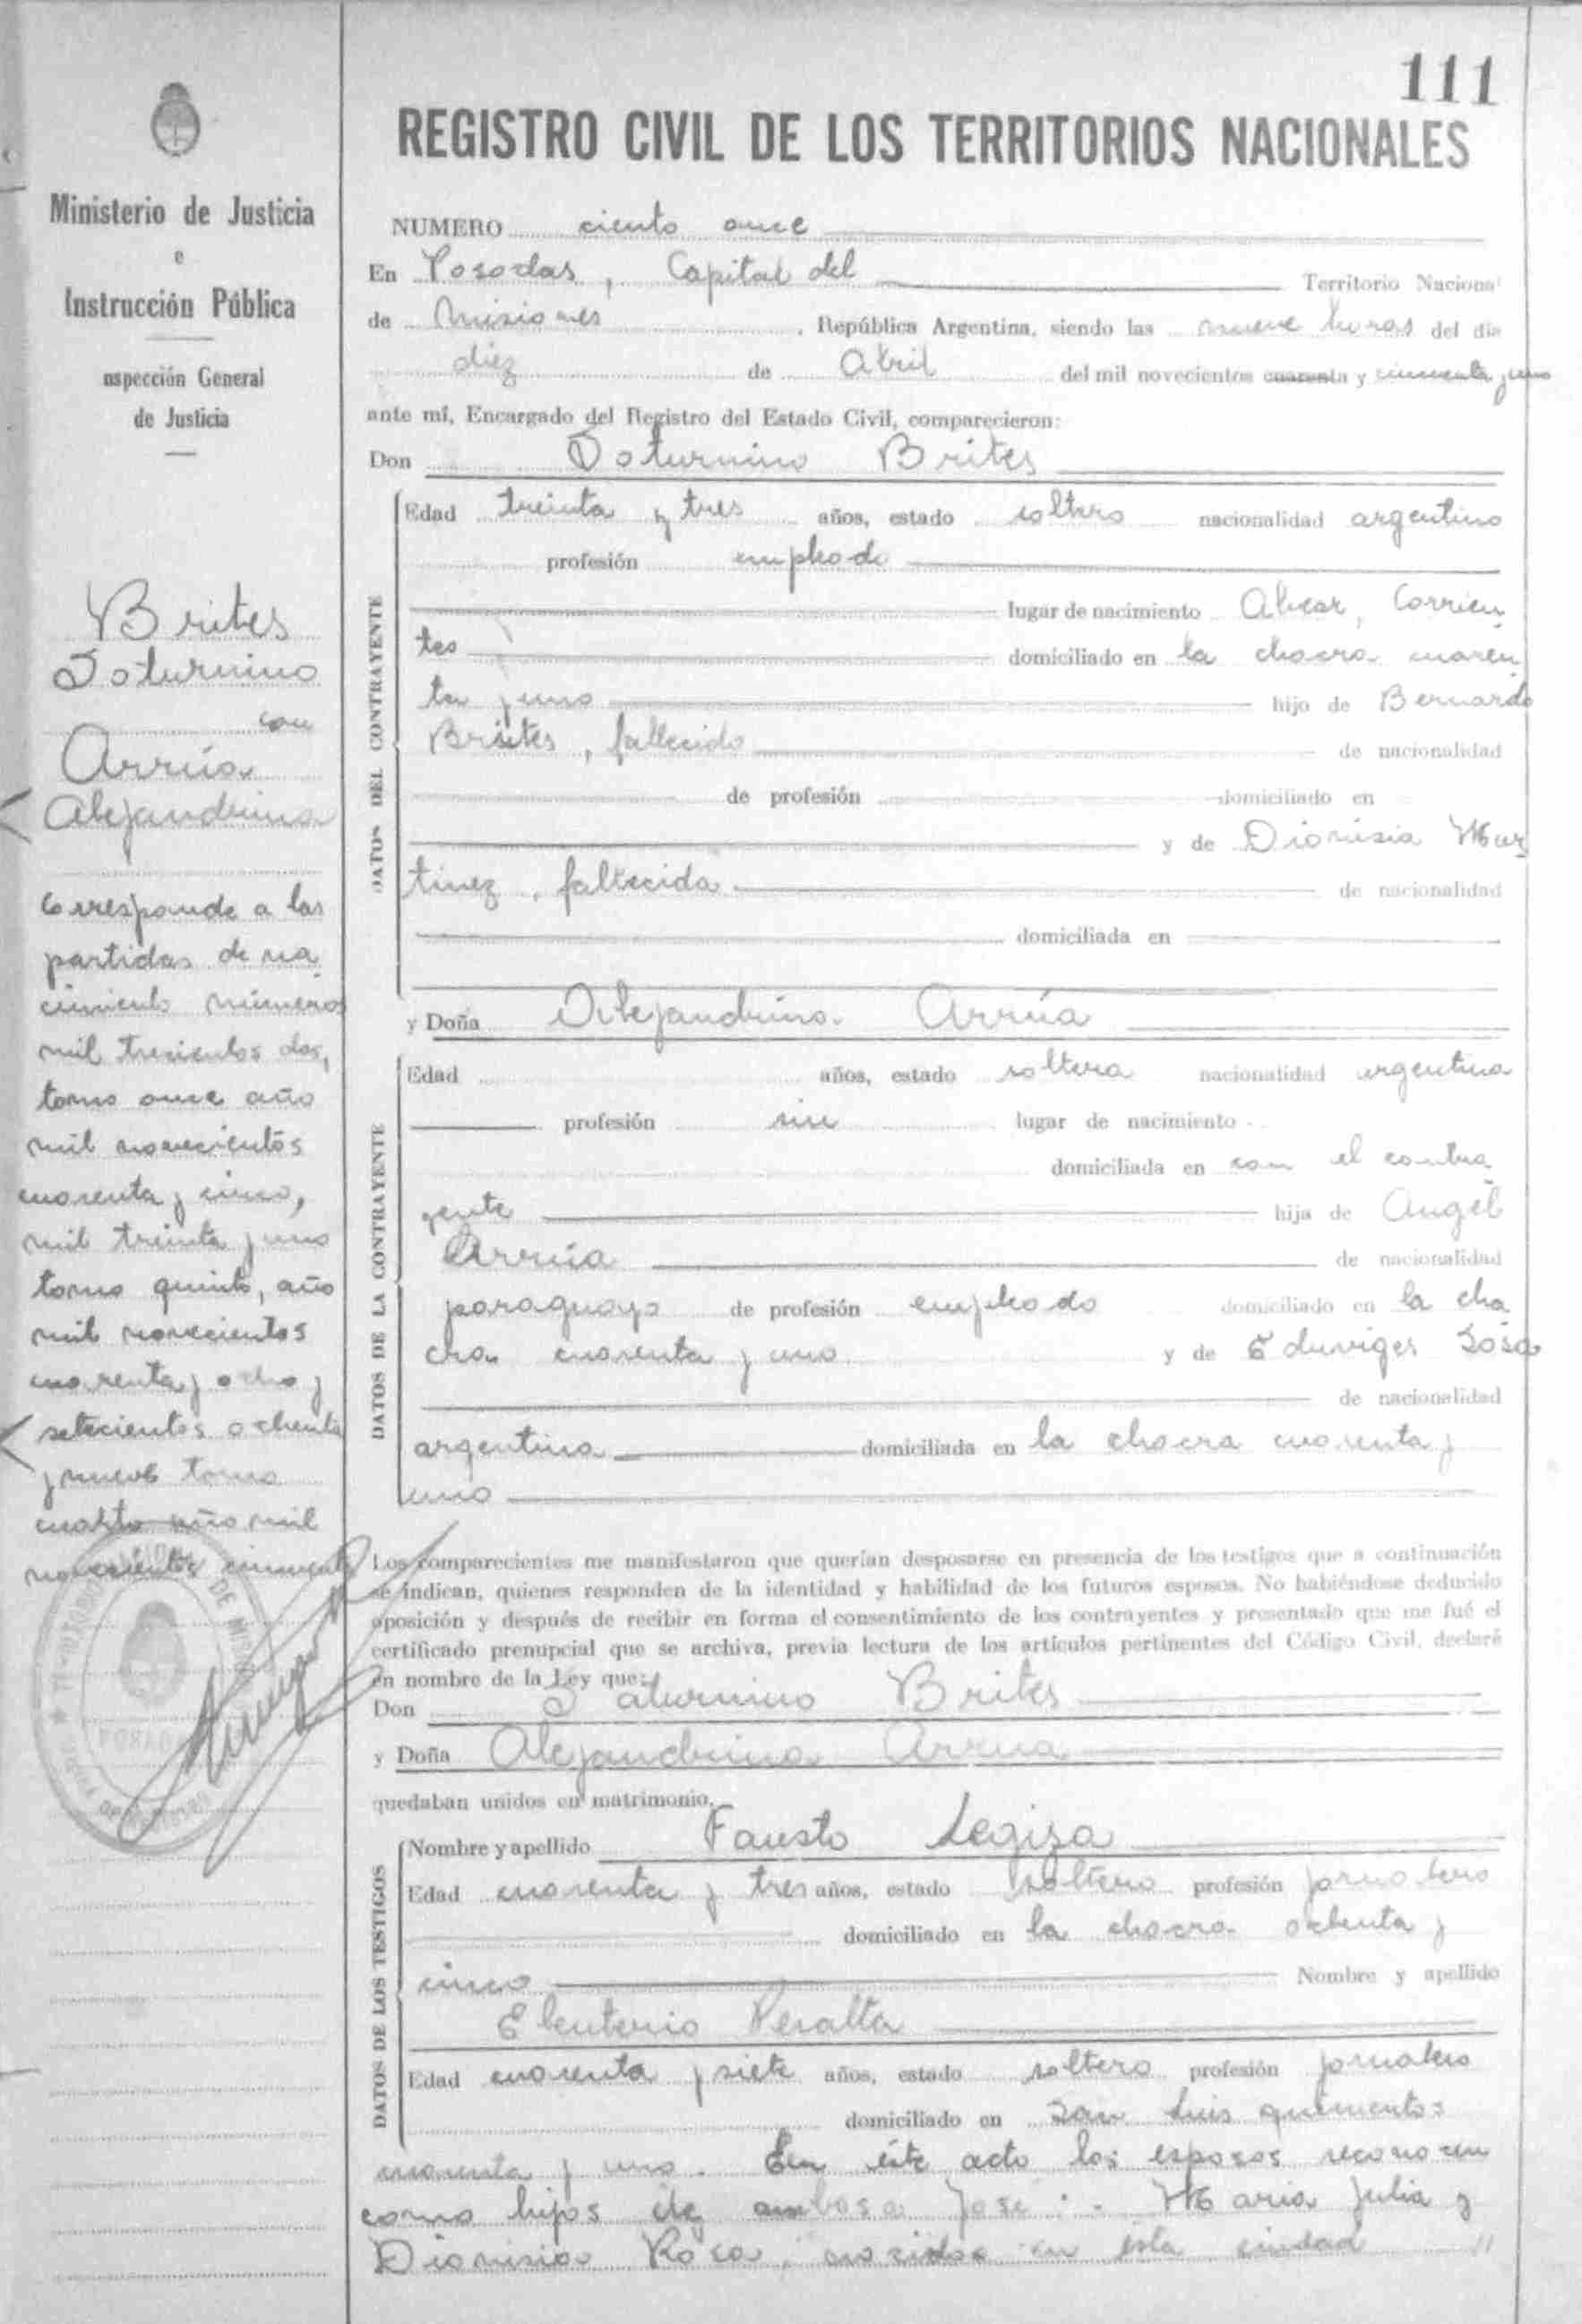 111
REGISTRO CIVIL DE LOS TERRITORIOS NACIONALES
Ministerio de Justicia
e
Instrucción Pública
nspección General
de Justicia
Brites
Saturnino
con
Arrúa
Alejandrina
Corresponde a las
partidas de na
cimiento números
mil trescientos dos,
tomo once año
mil novecientos
cuarenta y cinco,
mil treinta y uno
tomo quinto, año
mil novecientos
cuarenta y ocho y
setecientos ochenta
y nueve tomo
cuarto año mil
novecientos cincuenta
NUMERO ciento once
En Posadas, Capital del Territorio Naciona
de Misiones, República Argentina, siendo las nueve horas del día
diez de Abril del mil novecientos cuarenta y cincuenta y uno
ante mí, Encargado del Registro del Estado Civil, comparecieron:
Don Saturnino Brites
DATOS DEL CONTRAYENTE
Edad treinta y tres años, estado soltero nacionalidad argentino
profesión empleado
lugar de nacimiento Alvear, Corrien
tes domiciliado en la chacra cuaren
ta y uno hijo de Bernardo
Brites, fallecido de nacionalidad
de profesión domiciliado en
y de Dionisia Mar
tinez, fallecida de nacionalidad
domiciliada en
y Doña Alejandrina Arrúa
DATOS DE LA CONTRAYENTE
Edad años, estado soltera nacionalidad argentina
profesión sin lugar de nacimiento
domiciliada en con el contra
yente hija de Angel
Arrúa de nacionalidad
paraguayo de profesión empleado domiciliado en la cha
cra cuarenta y uno y de Eduviges Sosa
de nacionalidad
argentina domiciliada en la chacra cuarenta y
uno
Los comparecientes me manifestaron que querían desposarse en presencia de los testigos que a continuación
se indican, quienes responden de la identidad y habilidad de los futuros esposos. No habiéndose deducido
oposición y después de recibir en forma el consentimiento de los contrayentes y presentado que me fué el
certificado prenupcial que se archiva, previa lectura de los artículos pertinentes del Código Civil, declaré
en nombre de la Ley que:
Don Saturnino Brites
y Doña Alejandrina Arrua
quedaban unidos en matrimonio.
DATOS DE LOS TESTIGOS
Nombre y apellido Fausto Legiza
Edad cuarenta y tres años, estado soltero profesión jornalero
domiciliado en la chacra ochenta y
cinco Nombre y apellido
Eleuterio Peralta
Edad cuarenta y siete años, estado soltero profesión jornalero
domiciliado en San Luis quinientos
cuarenta y uno. En éste acto los esposos reconocen
como hijos de ambos a José : - Maria Julia y
Dionisia Rosa, nacidos en esta ciudad